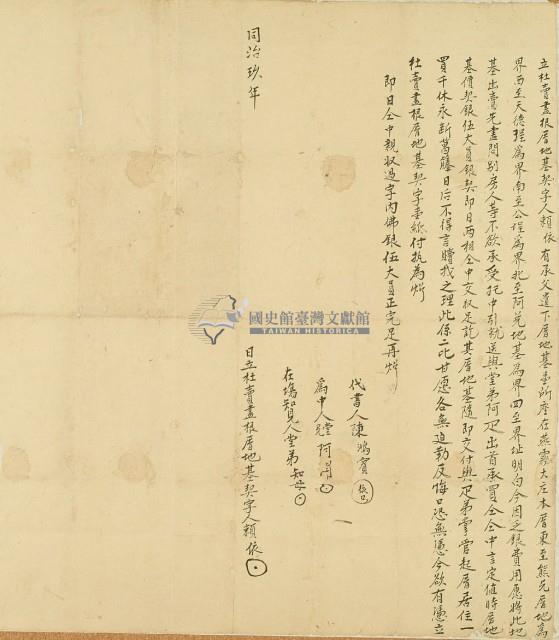 立杜賣盡根厝地基契字人賴依有承父遺下厝地基壹所座在燕霧大庄本厝東至熊光厝地為
界西至天德埕為界南至公埕為界北至阿兌地基為界四至界址明白今因乏銀費用愿將此地
基出賣先盡問別房人等不欲承受托中引就送與堂弟阿疋出首承買仝中言定值時厝地
基價契銀伍大員銀契即日両相仝中交收足訖其厝地基隨即交付與疋弟掌管起厝居住一
買千休永斷葛藤日后不得言贖找之理此係二比甘愿各無迫勒反悔口恐無憑今欲有憑立
杜賣盡根厝地基契字壹紙付执為炤
即日仝中親収過字內佛銀伍大員正完足再炤
代書人陳鴻賓
為中人兄阿
在塲知見人堂弟知母
同治玖年
日立杜賣盡根厝地基契字人賴依
國史館臺灣文獻館
TAIWAN HISTORICA